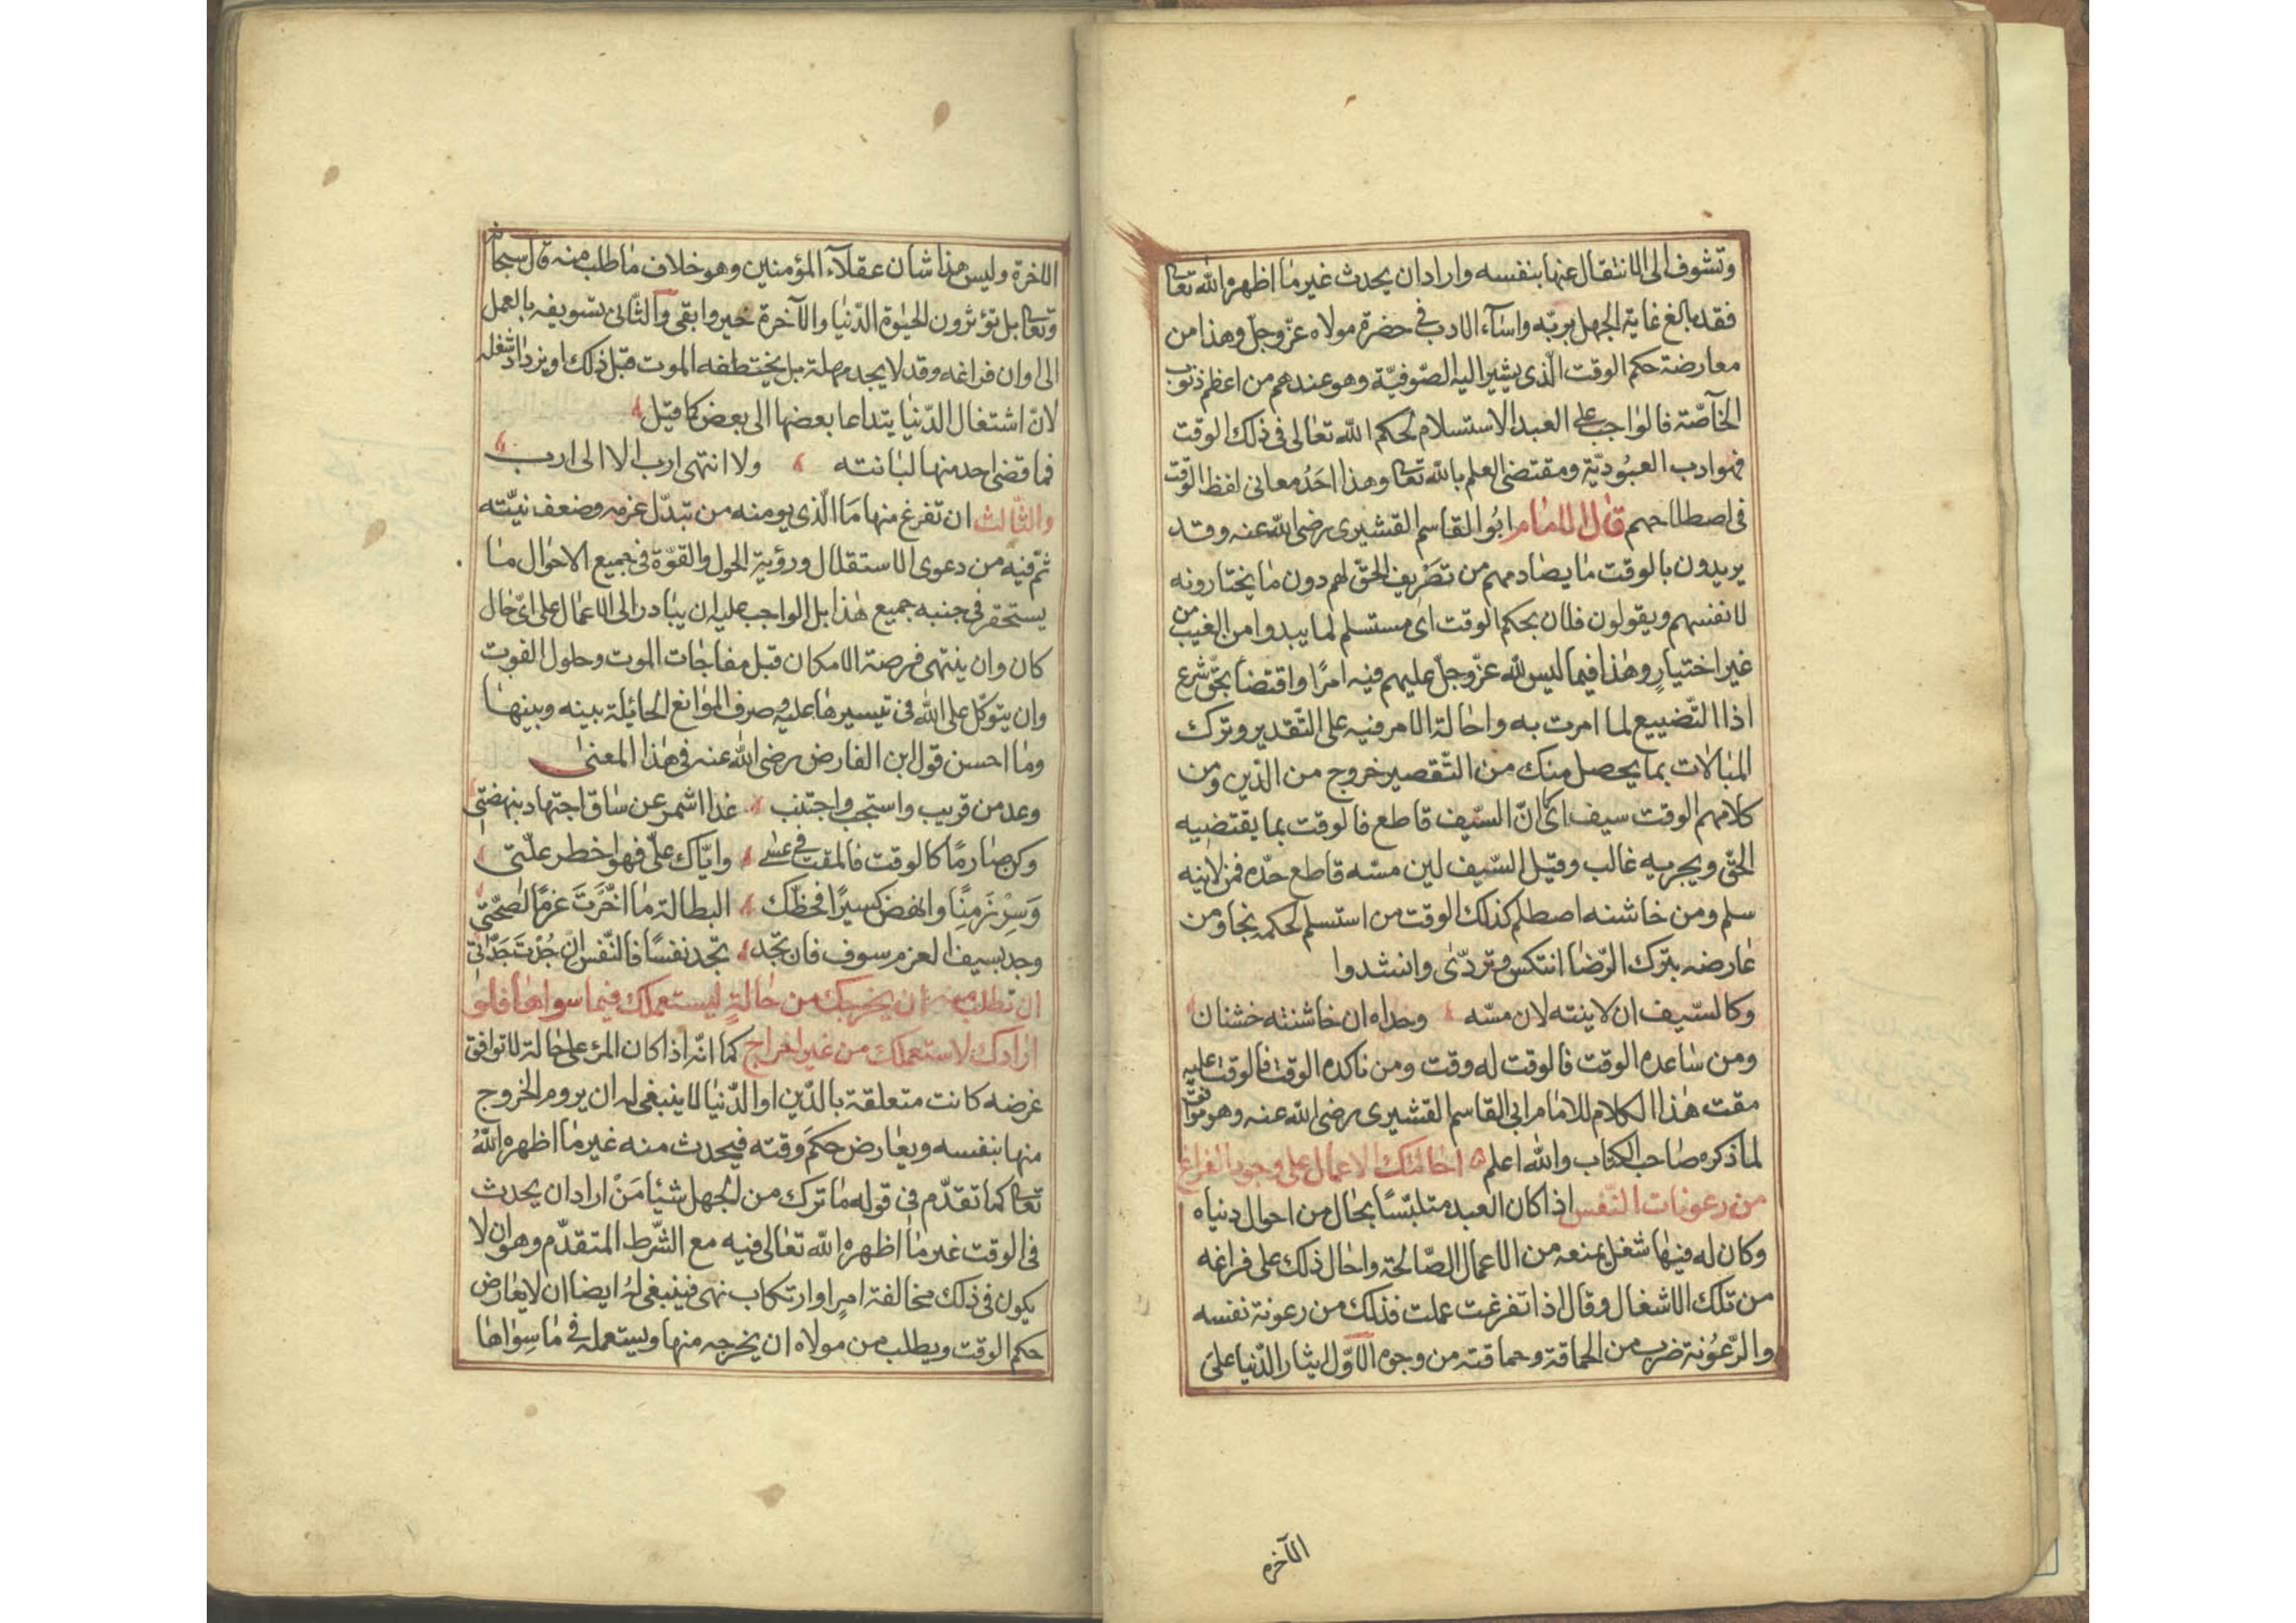 وتشوف الى الانتقال عنها بنفسه واراد ان يحدث غير ما اظهره الله تعا
فقد بالغ غاية الجهل بربّه واسآء الادب فى حضرة مولاه عزّ وجلّ وهذا من
معارضة حكم الوقت الّذى يشير اليه الصّوفيّة وهو عندهم من اعظم ذنوب
الخآصّة فالواجب على العبد الاستسلام لحكم الله تعالى فى ذلك الوقت
فهو ادب العبُوديّة ومقتضى العلم بالله تعا وهذا احَدُ معانى لفظ الوقت
فى اصطلاحهم قال الامام ابُو القاسم القشيرى رضى الله عنه وقد
يريدون بالوقت ما يصادمهم من تصَريف الحقّ لهم دون ما يختارونه
لانفسهم ويقولون فلان بحكم الوقت اى مستسلم لما يبدوا من الغيب من
غير اختيارٍ وهٰذا فيما ليس لله عزّ وجلّ عليهم فيه امرًا واقتضآ بحقّ شرع
اذا التّضييع لما امرت به واحالة الامر فيه على التّقدير وترك
المبالات بما يحصل منك من التّقصير خروج من الدّين ومن
كلامهم الوقت سيف اى كما انّ السّيف قاطع فالوقت بما يقتضيه
الحقّ ويجريه غالب وقيل السّيف لين مسّه قاطع حدّه فمن لاينه
سلم ومن خاشنه اصطلم كذلك الوقت من استسلم لحكمه نجا ومن
عارضه بترك الرّضا انتكس وتردّى وانشدوا
وكالسّيف ان لاينته لان مسّه وحداه ان خاشنته خشنان
ومن ساعده الوقت فالوقت له وقت ومن ناكده الوقت فالوقت عليه
مقت هٰذا الكلام للامام ابى القاسم القشيرى رضى الله عنه وهو موافق
لما ذكره صاحب الكتاب والله اعلم احالتك الاعمال على وجود الفراغ
من رعونات النّفس اذا كان العبد متلبّسًا بحال من احوال دنياه
وكان له فيها شغل يمنعه من الاعمال الصّالحة واحال ذلك على فراغه
من تلك الاشغال وقال اذا تفرغت عملت فذلك من رعونة نفسه
والرّعُونة ضرب من الحماقة وحماقته من وجوه الاوّل ايثار الدّنيا على
الآخره
الاخرة وليس هذا شان عقلآء المؤمنين وهو خلاف ما طلب منه قال سبحانه
وتعا بل تؤثرون الحيٰوة الدّنيا والآخرة خير وابقى والثّانى تسويفه بالعمل
الى اوان فراغه وقد لا يجد مهلة بل يختطفه الموت قبل ذلك او يزداد شغله
لانّ اشتغال الدّنيا يتداعا بعضها الى بعض كما قيل
فما قضى احد منها لبانته ولا انتهى ارب الا الى ارب
والثّالث ان تفرغ منها مَا الّذى يومنه من تبدّل عزمه وضعف نيّته
ثمّ فيه من دعوى الاستقلال ورؤية الحول والقوّة فى جميع الاحوال ما
يستحقر فى جنبه جميع هٰذا بل الواجب عليه ان يبادر الى الاعمال على اىّ حال
كان وان ينتهى فرصة الامكان قبل مفاجات الموت وحلول الفوت
وان يتوكّل على الله فى تيسيرها عليه وصرف الموانع الحائلة بينه وبينها
وما احسن قول ابن الفارض رضى الله عنه فى هٰذا المعنىٰ
وعد من قريب واستجب واجتنب غدا اشمر عن ساق اجتهاد بنهضتى
وكن صارمًا كالوقت فالمقت فى عسى وايّاك علّى فهو اخطر علّتى
وَسِرْ زَمِنًا وانهض كسيرًا فحظّك البطالة ما اخّرتَ عزمًا لصحّتى
وجد بسيف العزم سوف فان تجّد تجّد نفسًا فالنّفس ان جُدْتَ جَدّتى
لا تطلب منه ان يخرجك من حالةٍ ليستعملك فيما سواها فلو
ارادك لاستعملك من غير اخراج كما انّه اذا كان المرء على حالة لا توافق
غرضه كانت متعلقة بالدّين او الدّنيا لا ينبغى له ان يروم الخروج
منها بنفسه ويعارض حكمَ وقته فيحدث منه غير ما اظهره اللهُ
تعا كما تقدّم فى قوله ما ترك من الجهل شيئا مَنْ اراد ان يحدث
فى الوقت غير ما اظهره الله تعالى فيه مع الشّرط المتقدّم وهو ان لا
يكون فى ذلك مخالفة امرٍ او ارتكاب نهى فينبغى لهُ ايضا ان لا يعارض
حكم الوقت ويطلب من مولاه ان يخرجه منها ويستعمله فى ما سِواها